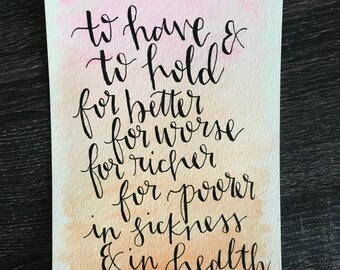 to have &
to hold
for better
for worse
for richer
for poorer
in sickness
& in health